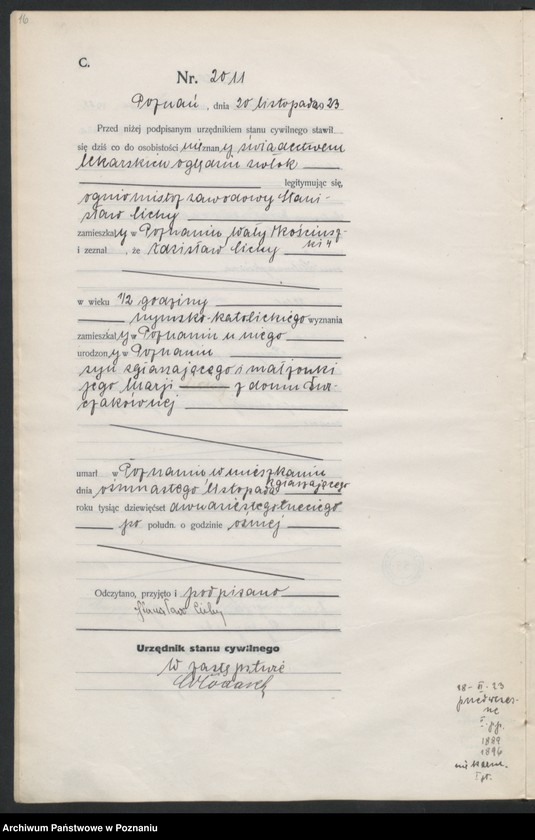 16
C.
Nr. 2011
Poznań, dnia 20 listopada 1923
Przed niżej podpisanym urzędnikiem stanu cywilnego stawił
się dziś co do osobistości nieznany, świadectwem
lekarskiem oględzin zwłok
legitymując się,
ogniomistrz zawodowy Stani-
sław Cichy
zamieszkały w Poznaniu, Wały
i zeznał, że Zdzisław Cichy
w wieku 1/2 godziny
rzymsko-katolickiego wyznania
zamieszkały w Poznaniu u niego
urodzony w Poznaniu
syn zgłaszającego i małżonki
jego Marji z domu
umarł w Poznaniu w mieszkaniu
zgłaszającego
dnia ośmnastego listopada
roku tysiąc dziewięćset dwudziestego trzeciego
po połudn. o godzinie ósmej
Odczytano, przyjęto i podpisano
Stanisław Cichy
Urzędnik stanu cywilnego
W zastępstwie
18-II-23
przedwczes-
ne
I. p.p.
1889
1896
Archiwum Państwowe w Poznaniu